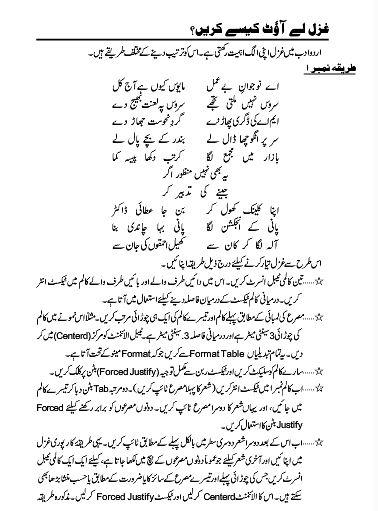 غزل لے آؤٹ کیسے کریں؟
اردو ادب میں غزل اپنی الگ اہمیت رکھتی ہے۔ اس کو ترتیب دینے کے مختلف طریقے ہیں۔
طریقہ نمبر ۱
اے نوجوانِ بے عمل مایوس کیوں ہے آج کل
سروس نہیں ملتی تجھے سروس پہ لعنت بھیج دے
ایم اے کی ڈگری پھاڑ دے گردِ نحوست جھاڑ دے
سر پر انگوچھا ڈال لے بندر کے بچے پال لے
بازار میں مجمع لگا کرتب دکھا پیسہ کما
یہ بھی نہیں منظور اگر
جینے کی تدبیر کر
اپنا کلینک کھول کر بن جا عطائی ڈاکٹر
پانی کے انجکشن لگا پانی بہا چاندی بنا
آلہ لگا کر کان سے کھیل احمقوں کی جان سے
اس طرح سے غزل تیار کرنے کیلئے درج ذیل طریقہ اپنائیں۔
☆.....تین کالمی ٹیبل انسرٹ کریں۔ اس میں دائیں طرف والے اور بائیں طرف والے کالم میں ٹیکسٹ انٹر
کریں۔ درمیانی کالم ٹیکسٹ کے درمیان فاصلہ دینے کیلئے استعمال میں آتا ہے۔
☆.....مصرع کی لمبائی کے مطابق پہلے کالم اور تیسرے کالم کی ایک ہی چوڑائی مرتب کریں۔ مثلاً اس نمونے میں کالم
کی چوڑائی 3 سینٹی میٹر ہے اور درمیانی فاصلہ 3. سینٹی میٹر ہے۔ ٹیبل الائنمنٹ کو مرکز (Centerd) میں کر
دیں۔ یہ تمام تبدیلیاں Format Table سے کریں جو کہ Format مینو کے تحت آتا ہے۔
☆.....سارے کالم کو سلیکٹ کریں اور ٹیکسٹ ربن سے مکمل توجیہ (Forced Justify) بٹن پر کلک کریں۔
☆.....اب کالم نمبر ا میں ٹیکسٹ انٹر کریں (شعر کا پہلا مصرع ٹائپ کریں)۔ دو مرتبہ Tab بٹن دبا کر تیسرے کالم
میں جائیں، اور یہاں شعر کا دوسرا مصرع ٹائپ کریں۔ دونوں مصرعوں کو برابر رکھنے کیلئے Forced
Justify بٹن کا استعمال کریں۔
☆.....اب اس کے بعد دوسرا شعر دوسری سطر میں بالکل پہلے کے مطابق ٹائپ کریں۔ یہی طریقہ کار پوری غزل
میں اپنائیں اور آخری شعر کیلئے جو عموماً دونوں مصرعوں کے بیچ میں لکھا جاتا ہے، کیلئے ایک ایک کالمی ٹیبل
انسرٹ کریں جس کی چوڑائی تیسرے مصرع کے سائز کا یا ضرورت کے مطابق یا حسب منشا بڑھا بھی
سکتے ہیں۔ اس کا الائنمنٹ Centerd کرلیں اور ٹیکسٹ Forced Justify کرلیں۔ مذکورہ طریقہ